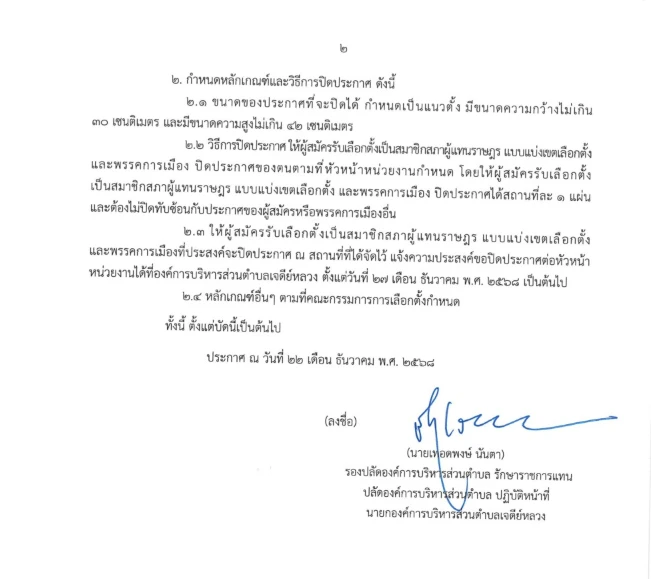 ๒
๒. กำหนดหลักเกณฑ์และวิธีการปิดประกาศ ดังนี้
๒.๑ ขนาดของประกาศที่จะปิดได้ กำหนดเป็นแนวตั้ง มีขนาดความกว้างไม่เกิน
๓๐ เซนติเมตร และมีขนาดความสูงไม่เกิน ๔๒ เซนติเมตร
๒.๒ วิธีการปิดประกาศ ให้ผู้สมัครรับเลือกตั้งเป็นสมาชิกสภาผู้แทนราษฎร แบบแบ่งเขตเลือกตั้ง
และพรรคการเมือง ปิดประกาศของตนตามที่หัวหน้าหน่วยงานกำหนด โดยให้ผู้สมัครรับเลือกตั้ง
เป็นสมาชิกสภาผู้แทนราษฎร แบบแบ่งเขตเลือกตั้ง และพรรคการเมือง ปิดประกาศได้สถานที่ละ ๑ แผ่น
และต้องไม่ปิดทับซ้อนกับประกาศของผู้สมัครหรือพรรคการเมืองอื่น
๒.๓ ให้ผู้สมัครรับเลือกตั้งเป็นสมาชิกสภาผู้แทนราษฎร แบบแบ่งเขตเลือกตั้ง
และพรรคการเมืองที่ประสงค์จะปิดประกาศ ณ สถานที่ที่ได้จัดไว้ แจ้งความประสงค์ขอปิดประกาศต่อหัวหน้า
หน่วยงานได้ที่องค์การบริหารส่วนตำบลเจดีย์หลวง ตั้งแต่วันที่ ๒๗ เดือน ธันวาคม พ.ศ. ๒๕๖๘ เป็นต้นไป
๒.๔ หลักเกณฑ์อื่นๆ ตามที่คณะกรรมการการเลือกตั้งกำหนด
ทั้งนี้ ตั้งแต่บัดนี้เป็นต้นไป
ประกาศ ณ วันที่ ๒๒ เดือน ธันวาคม พ.ศ. ๒๕๖๘
(ลงชื่อ)
(นายเทอดพงษ์ นันตา)
รองปลัดองค์การบริหารส่วนตำบล รักษาราชการแทน
ปลัดองค์การบริหารส่วนตำบล ปฏิบัติหน้าที่
นายกองค์การบริหารส่วนตำบลเจดีย์หลวง